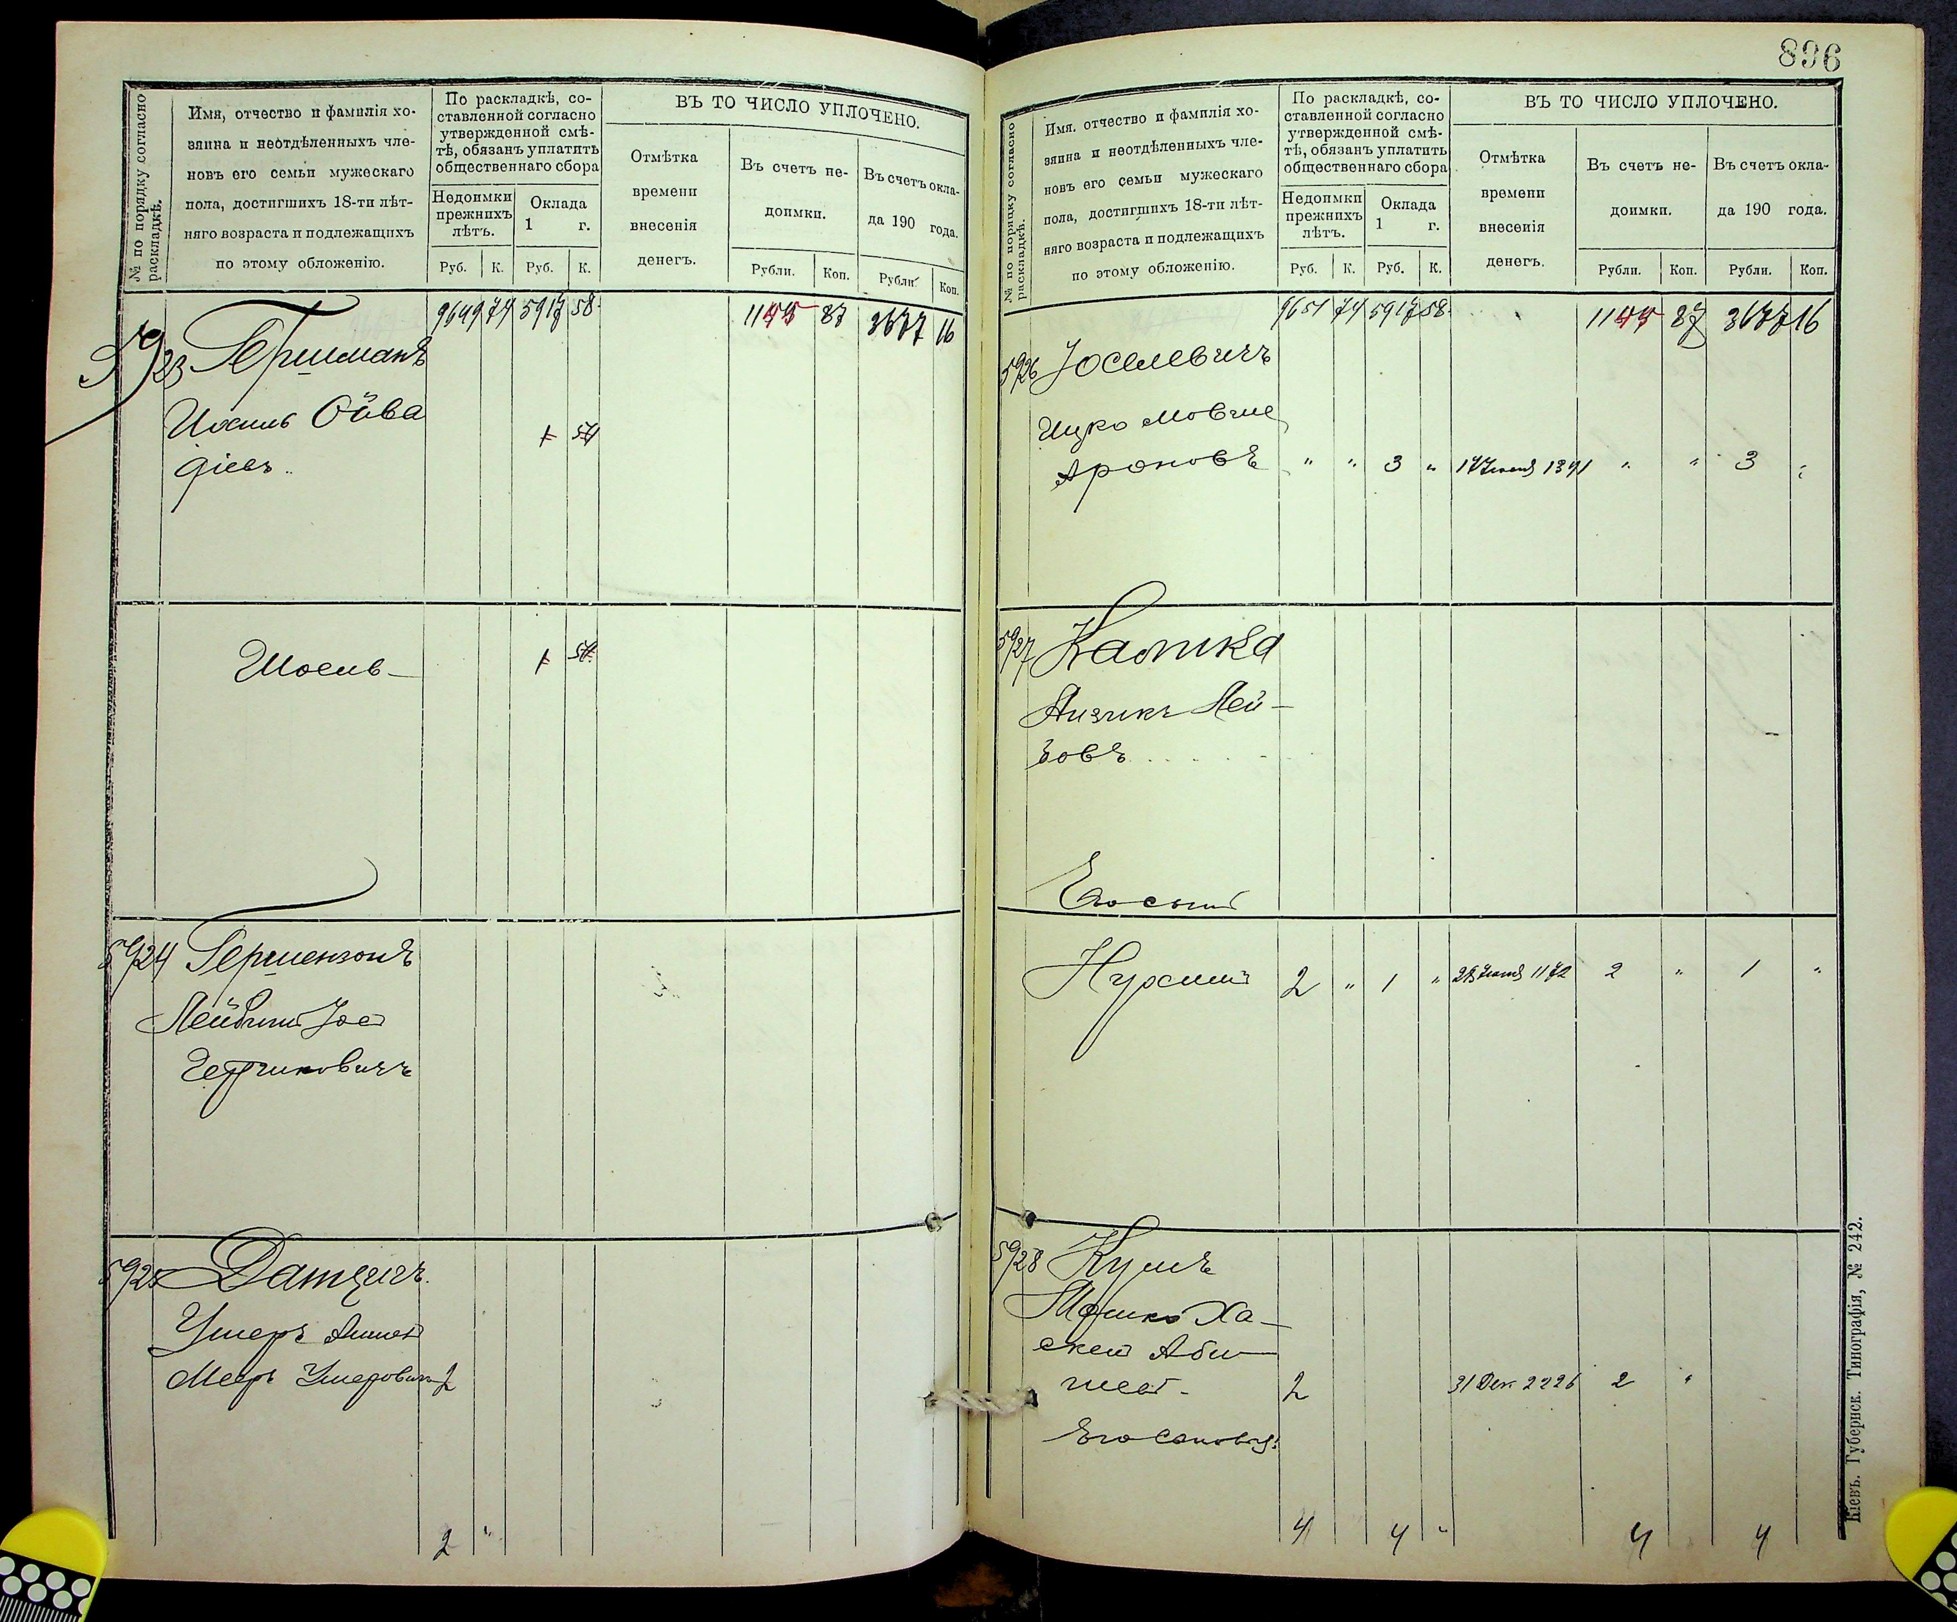 № по порядку согласно раскладкѣ.
Имя, отчество и фамилія хозяина и неотдѣленныхъ членовъ его семьи мужескаго пола, достигшихъ 18-ти лѣтняго возраста и подлежащихъ по этому обложенію.
По раскладкѣ, составленной согласно утвержденной смѣтѣ, обязанъ уплатить общественнаго сбора
Недоимки прежнихъ лѣтъ.
Оклада 1 г.
Руб. К. Руб. К.
ВЪ ТО ЧИСЛО УПЛОЧЕНО.
Отмѣтка времени внесенія денегъ.
Въ счетъ недоимки.
Въ счетъ оклада 190 года.
Рубли. Коп. Рубли Коп.
9649 74 5917 58 1155 87 3677 16
5923 Гершманъ
Иосиль Ойва
діевъ
1 54
Шоель
1 54
5924 Гершензонъ
Лейбиш Јос
Герчиковичъ
5925 Данцигъ
Ушеръ
Мееръ Ушеровичъ 2
2 "
896
№ по порядку согласно раскладкѣ.
Имя, отчество и фамилія хозяина и неотдѣленныхъ членовъ его семьи мужескаго пола, достигшихъ 18-ти лѣтняго возраста и подлежащихъ по этому обложенію.
По раскладкѣ, составленной согласно утвержденной смѣтѣ, обязанъ уплатить общественнаго сбора
Недоимки прежнихъ лѣтъ.
Оклада 1 г.
Руб. К. Руб. К.
ВЪ ТО ЧИСЛО УПЛОЧЕНО.
Отмѣтка времени внесенія денегъ.
Въ счетъ недоимки.
Въ счетъ оклада 190 года.
Рубли. Коп. Рубли. Коп.
9651 74 5917 58 1155 87 3677 16
5926 Јоселевичъ
Ицко Мовше
Ароновъ " " 3 " 17 1391 " " 3 "
5927 Калика
Аизикъ Лей-
зовъ
Его сынъ
Нухимъ 2 " 1 " 23 1172 2 " 1 "
5928
Мошко Ха-
скел Аби-
2 31 Дек 2226 2 "
Его сыновья:
4 4 " 4 4
Кіевъ. Губернск. Типографія, № 242.